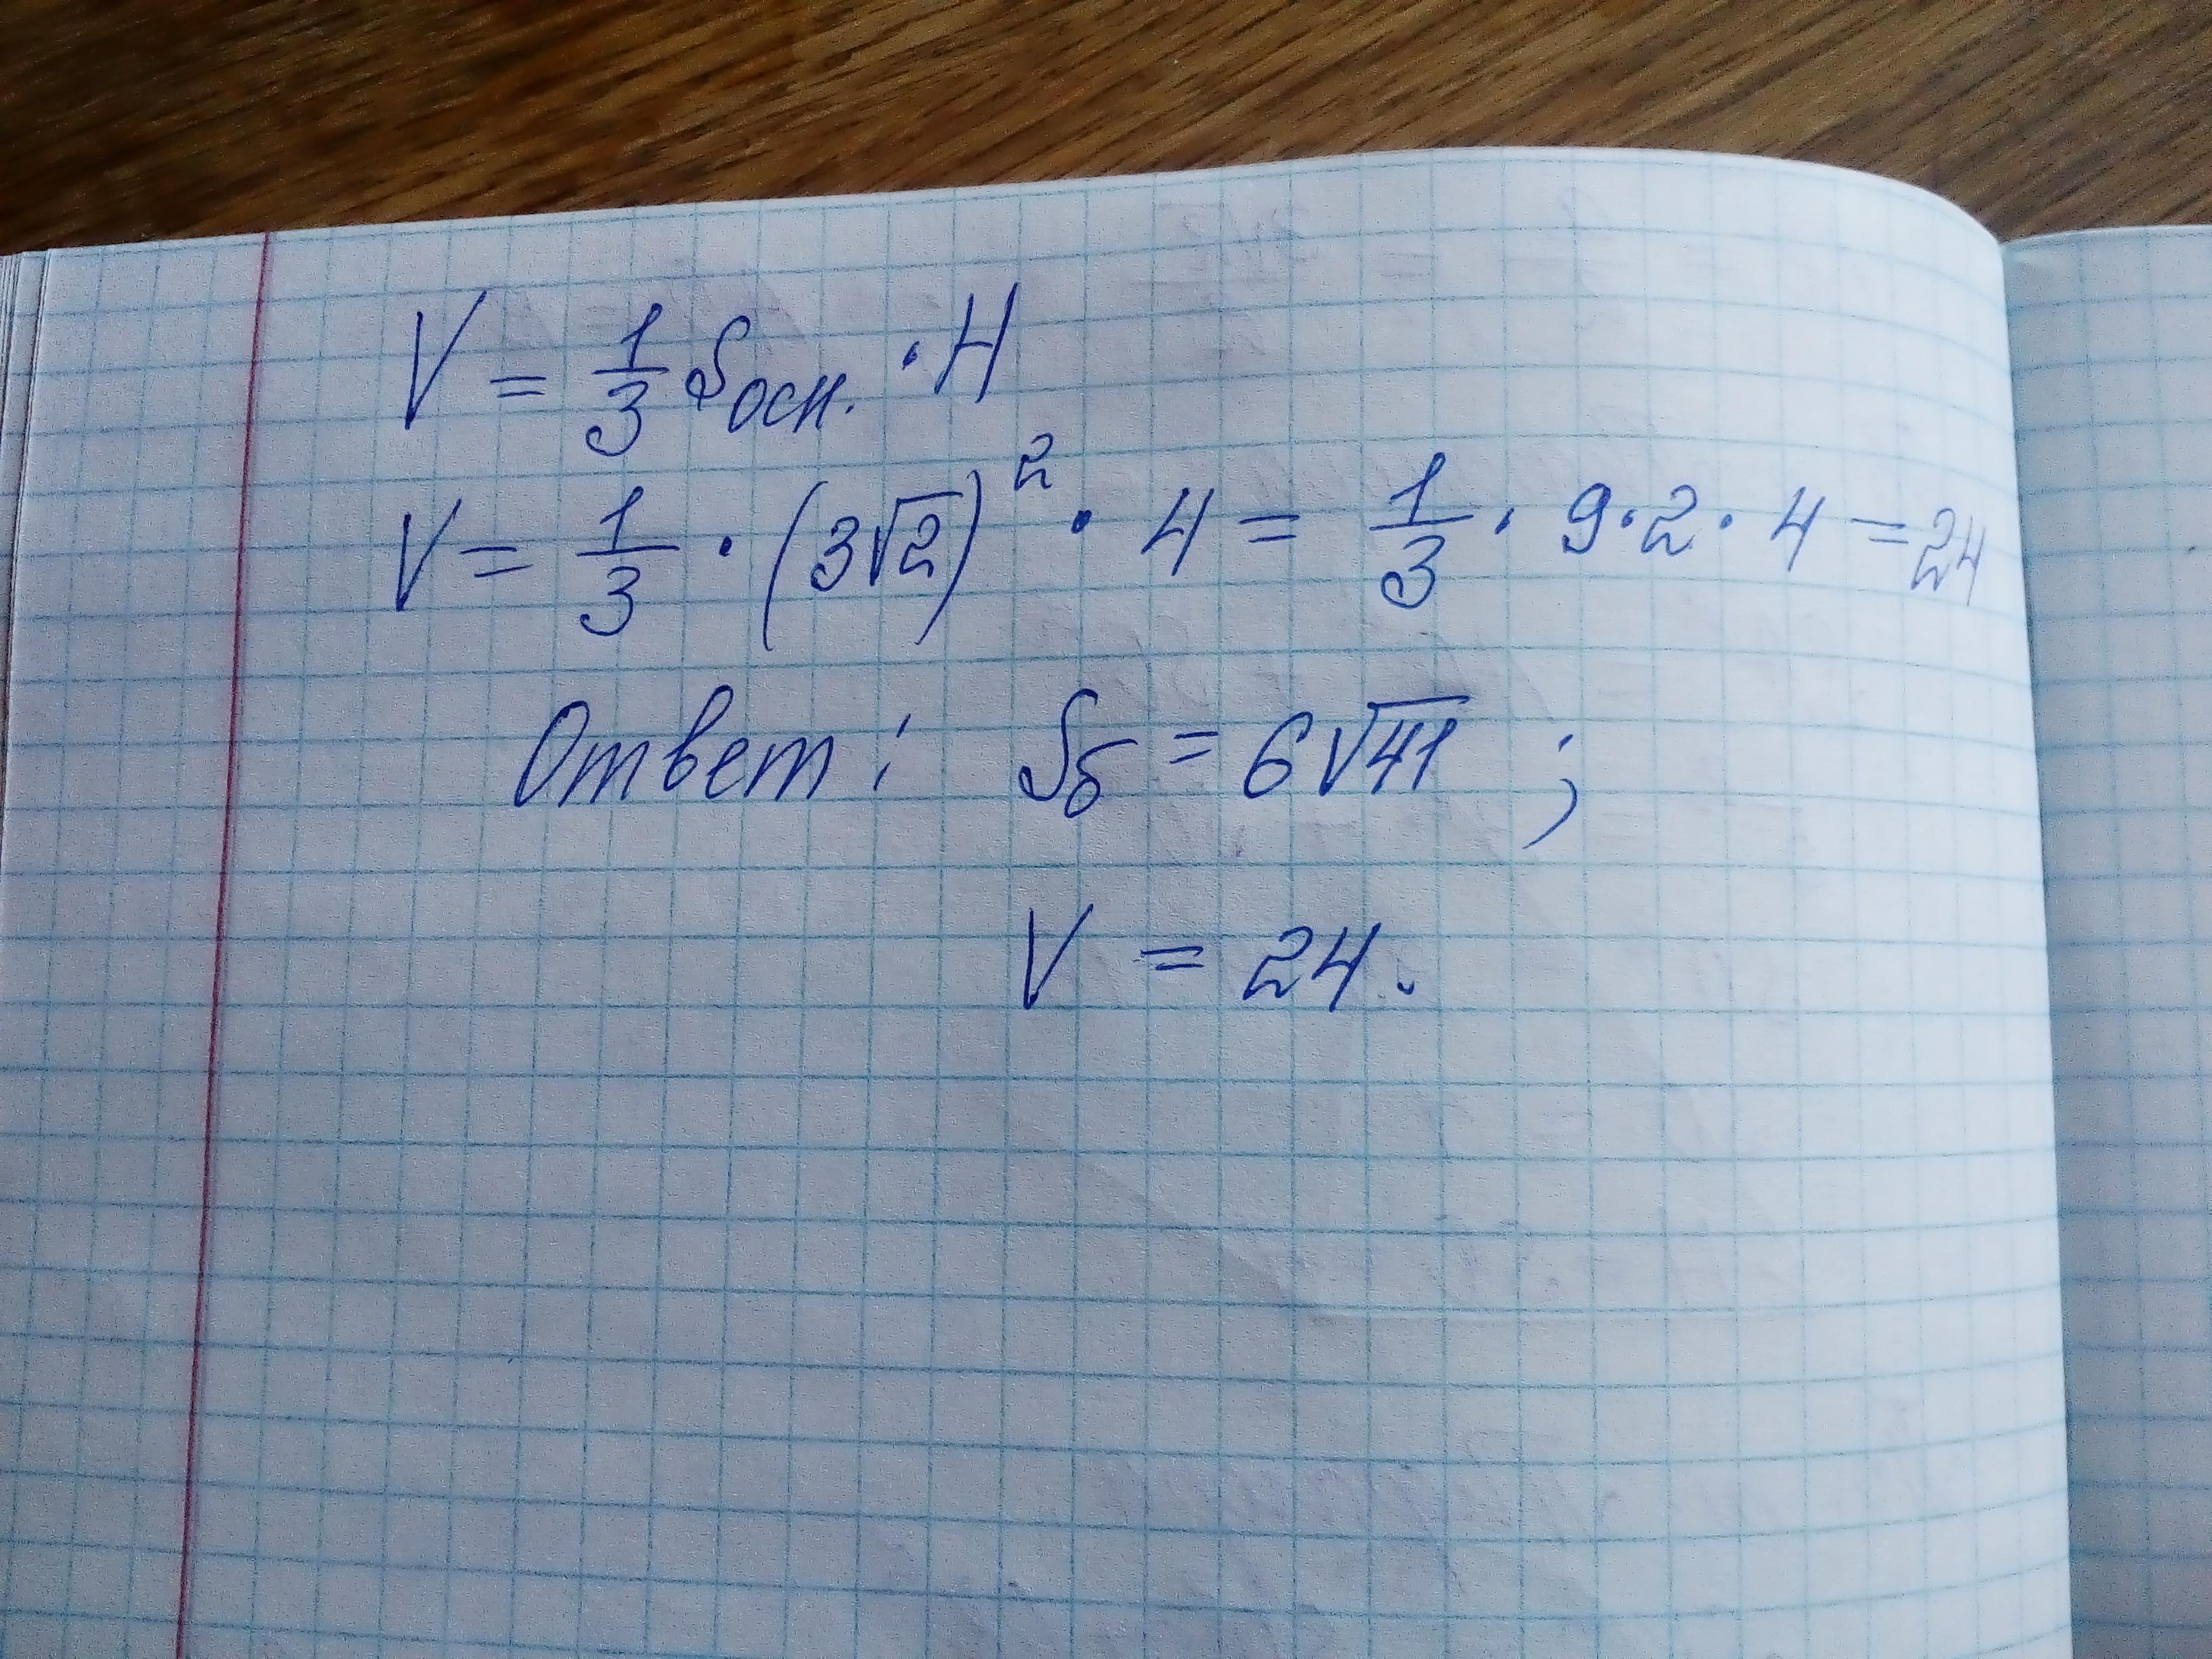 V = 1/3 Sосн. · H
V = 1/3 · (3√2)² · 4 = 1/3 · 9 · 2 · 4 = 24
Ответ: Sб = 6√41 ;
V = 24.